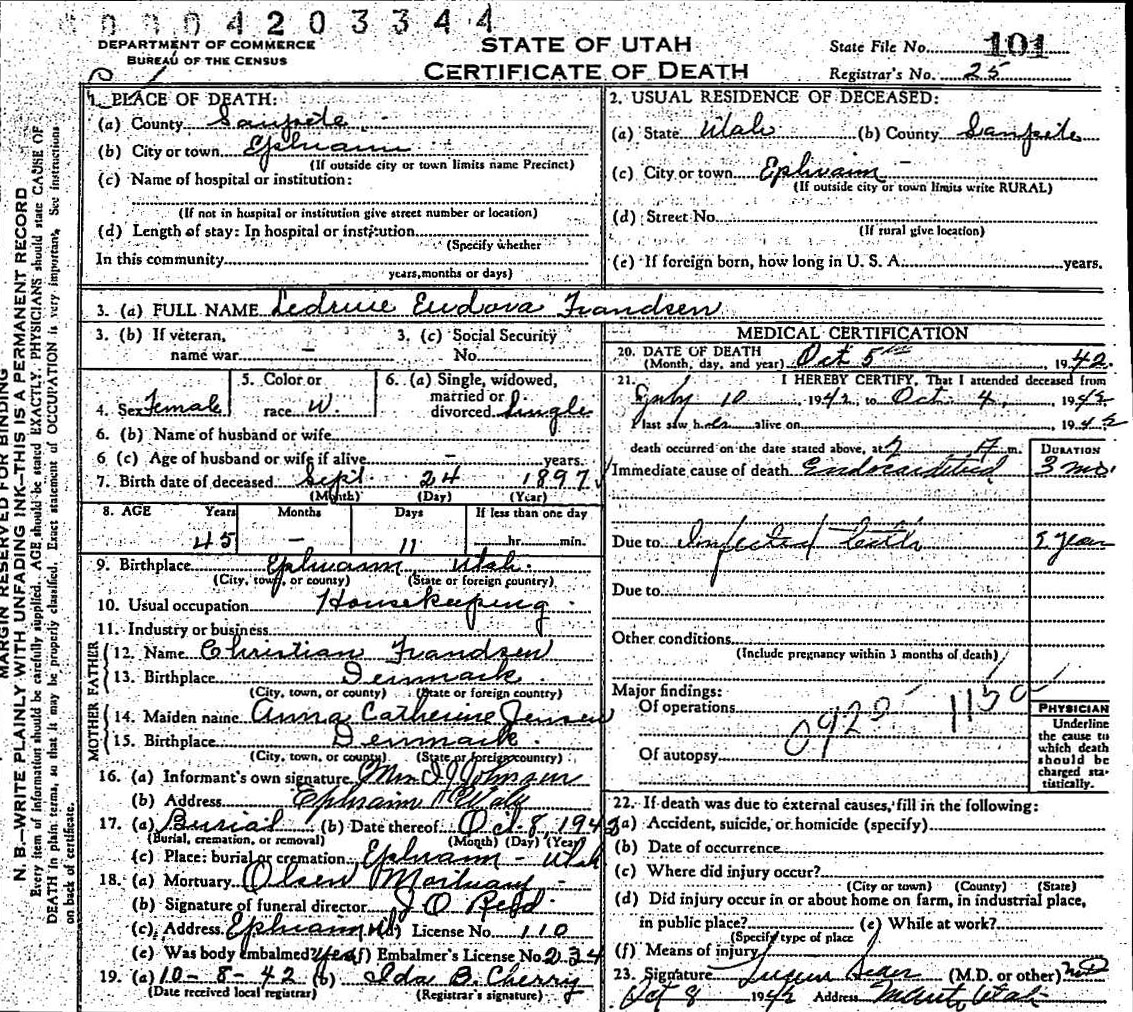 0004203344
DEPARTMENT OF COMMERCE
BUREAU OF THE CENSUS
STATE OF UTAH
CERTIFICATE OF DEATH
State File No. 101
Registrar's No. 25
MARGIN RESERVED FOR BINDING
N. B.—WRITE PLAINLY WITH UNFADING INK—THIS IS A PERMANENT RECORD
Every item of information should be carefully supplied. AGE should be stated EXACTLY. PHYSICIANS should state CAUSE OF
DEATH in plain terms, so that it may be properly classified. Exact statement of OCCUPATION is very important. See instructions
on back of certificate.
1. PLACE OF DEATH:
(a) County Sanpete
(b) City or town Ephraim
(If outside city or town limits name Precinct)
(c) Name of hospital or institution:
(If not in hospital or institution give street number or location)
(d) Length of stay: In hospital or institution
(Specify whether
In this community
years, months or days)
2. USUAL RESIDENCE OF DECEASED:
(a) State Utah (b) County Sanpete
(c) City or town Ephraim
(If outside city or town limits write RURAL)
(d) Street No.
(If rural give location)
(e) If foreign born, how long in U. S. A. years.
3. (a) FULL NAME Eudora Frandsen
3. (b) If veteran, name war –
3. (c) Social Security No.
4. Sex Female
5. Color or race W.
6. (a) Single, widowed, married or divorced Single
6. (b) Name of husband or wife
6 (c) Age of husband or wife if alive – years.
7. Birth date of deceased Sept. 24 1897
(Month) (Day) (Year)
8. AGE Years Months Days If less than one day
45 – 11 hr. min.
9. Birthplace Ephraim Utah.
(City, town, or county) (State or foreign country)
10. Usual occupation Housekeeping
11. Industry or business
FATHER
12. Name Christian Frandsen
13. Birthplace Denmark
(City, town, or county) (State or foreign country)
MOTHER
14. Maiden name Anna Catherine Jensen
15. Birthplace Denmark.
(City, town, or county) (State or foreign country)
16. (a) Informant's own signature Mrs Johnson
(b) Address Ephraim Utah
17. (a) Burial (b) Date thereof Oct. 8, 1942
(Burial, cremation, or removal) (Month) (Day) (Year)
(c) Place: burial or cremation Ephraim – Utah
18. (a) Mortuary Olsen Mortuary
(b) Signature of funeral director J O
(c) Address Ephraim Ut (d) License No. 110
(e) Was body embalmed? Yes (f) Embalmer's License No. 234
19. (a) 10-8-42 (b) Ida B. Cherry
(Date received local registrar) (Registrar's signature)
MEDICAL CERTIFICATION
20. DATE OF DEATH Oct 5th, 1942.
(Month, day, and year)
21. I HEREBY CERTIFY, That I attended deceased from
July 10, 1942, to Oct. 4, 1942
I last saw her alive on , 1942
death occurred on the date stated above, at m.
DURATION
Immediate cause of death 3 mo.
Due to Infected teeth year
Due to
Other conditions
(Include pregnancy within 3 months of death)
Major findings:
Of operations
Of autopsy
PHYSICIAN
Underline
the cause to
which death
should be
charged sta-
tistically.
22. If death was due to external causes, fill in the following:
(a) Accident, suicide, or homicide (specify)
(b) Date of occurrence
(c) Where did injury occur?
(City or town) (County) (State)
(d) Did injury occur in or about home on farm, in industrial place,
in public place? (e) While at work?
(Specify type of place)
(f) Means of injury
23. Signature (M.D. or other) MD
Oct 8 1942 Address Manti, Utah